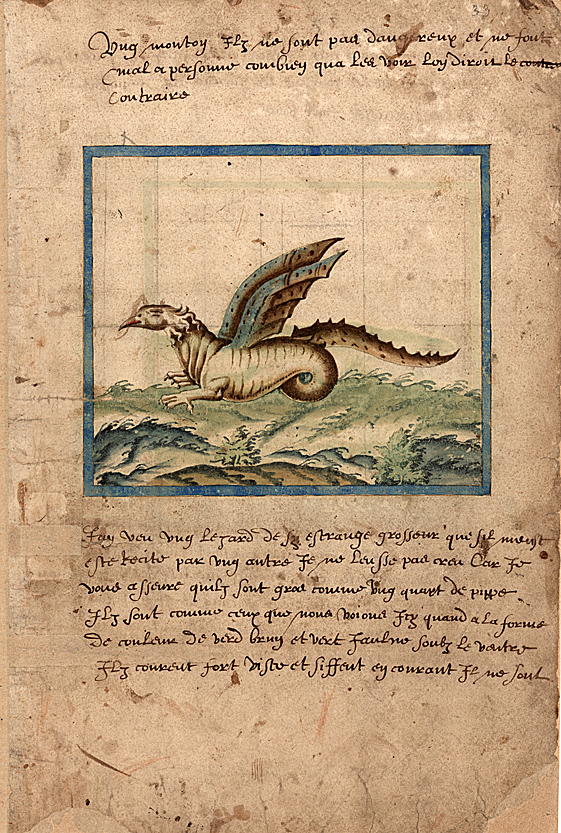 Vng mouton Ilz ne sont pas dangereux et ne font
mal a personne combien qua les voir lon diroit le contre
Contraire
Jay veu vng lezard de sy estrange grosseur que sil meust
este recite par vng autre Je ne leusse pas creu Car Je
vous asseure quilz sont gros comme vng quart de pippe
Ilz sont comme ceux que nous voions Icy quand a la forme
de couleur de verd brun et vert Jaulne soubz le ventre
Ilz courent fort viste et siffent en courant Il ne sont